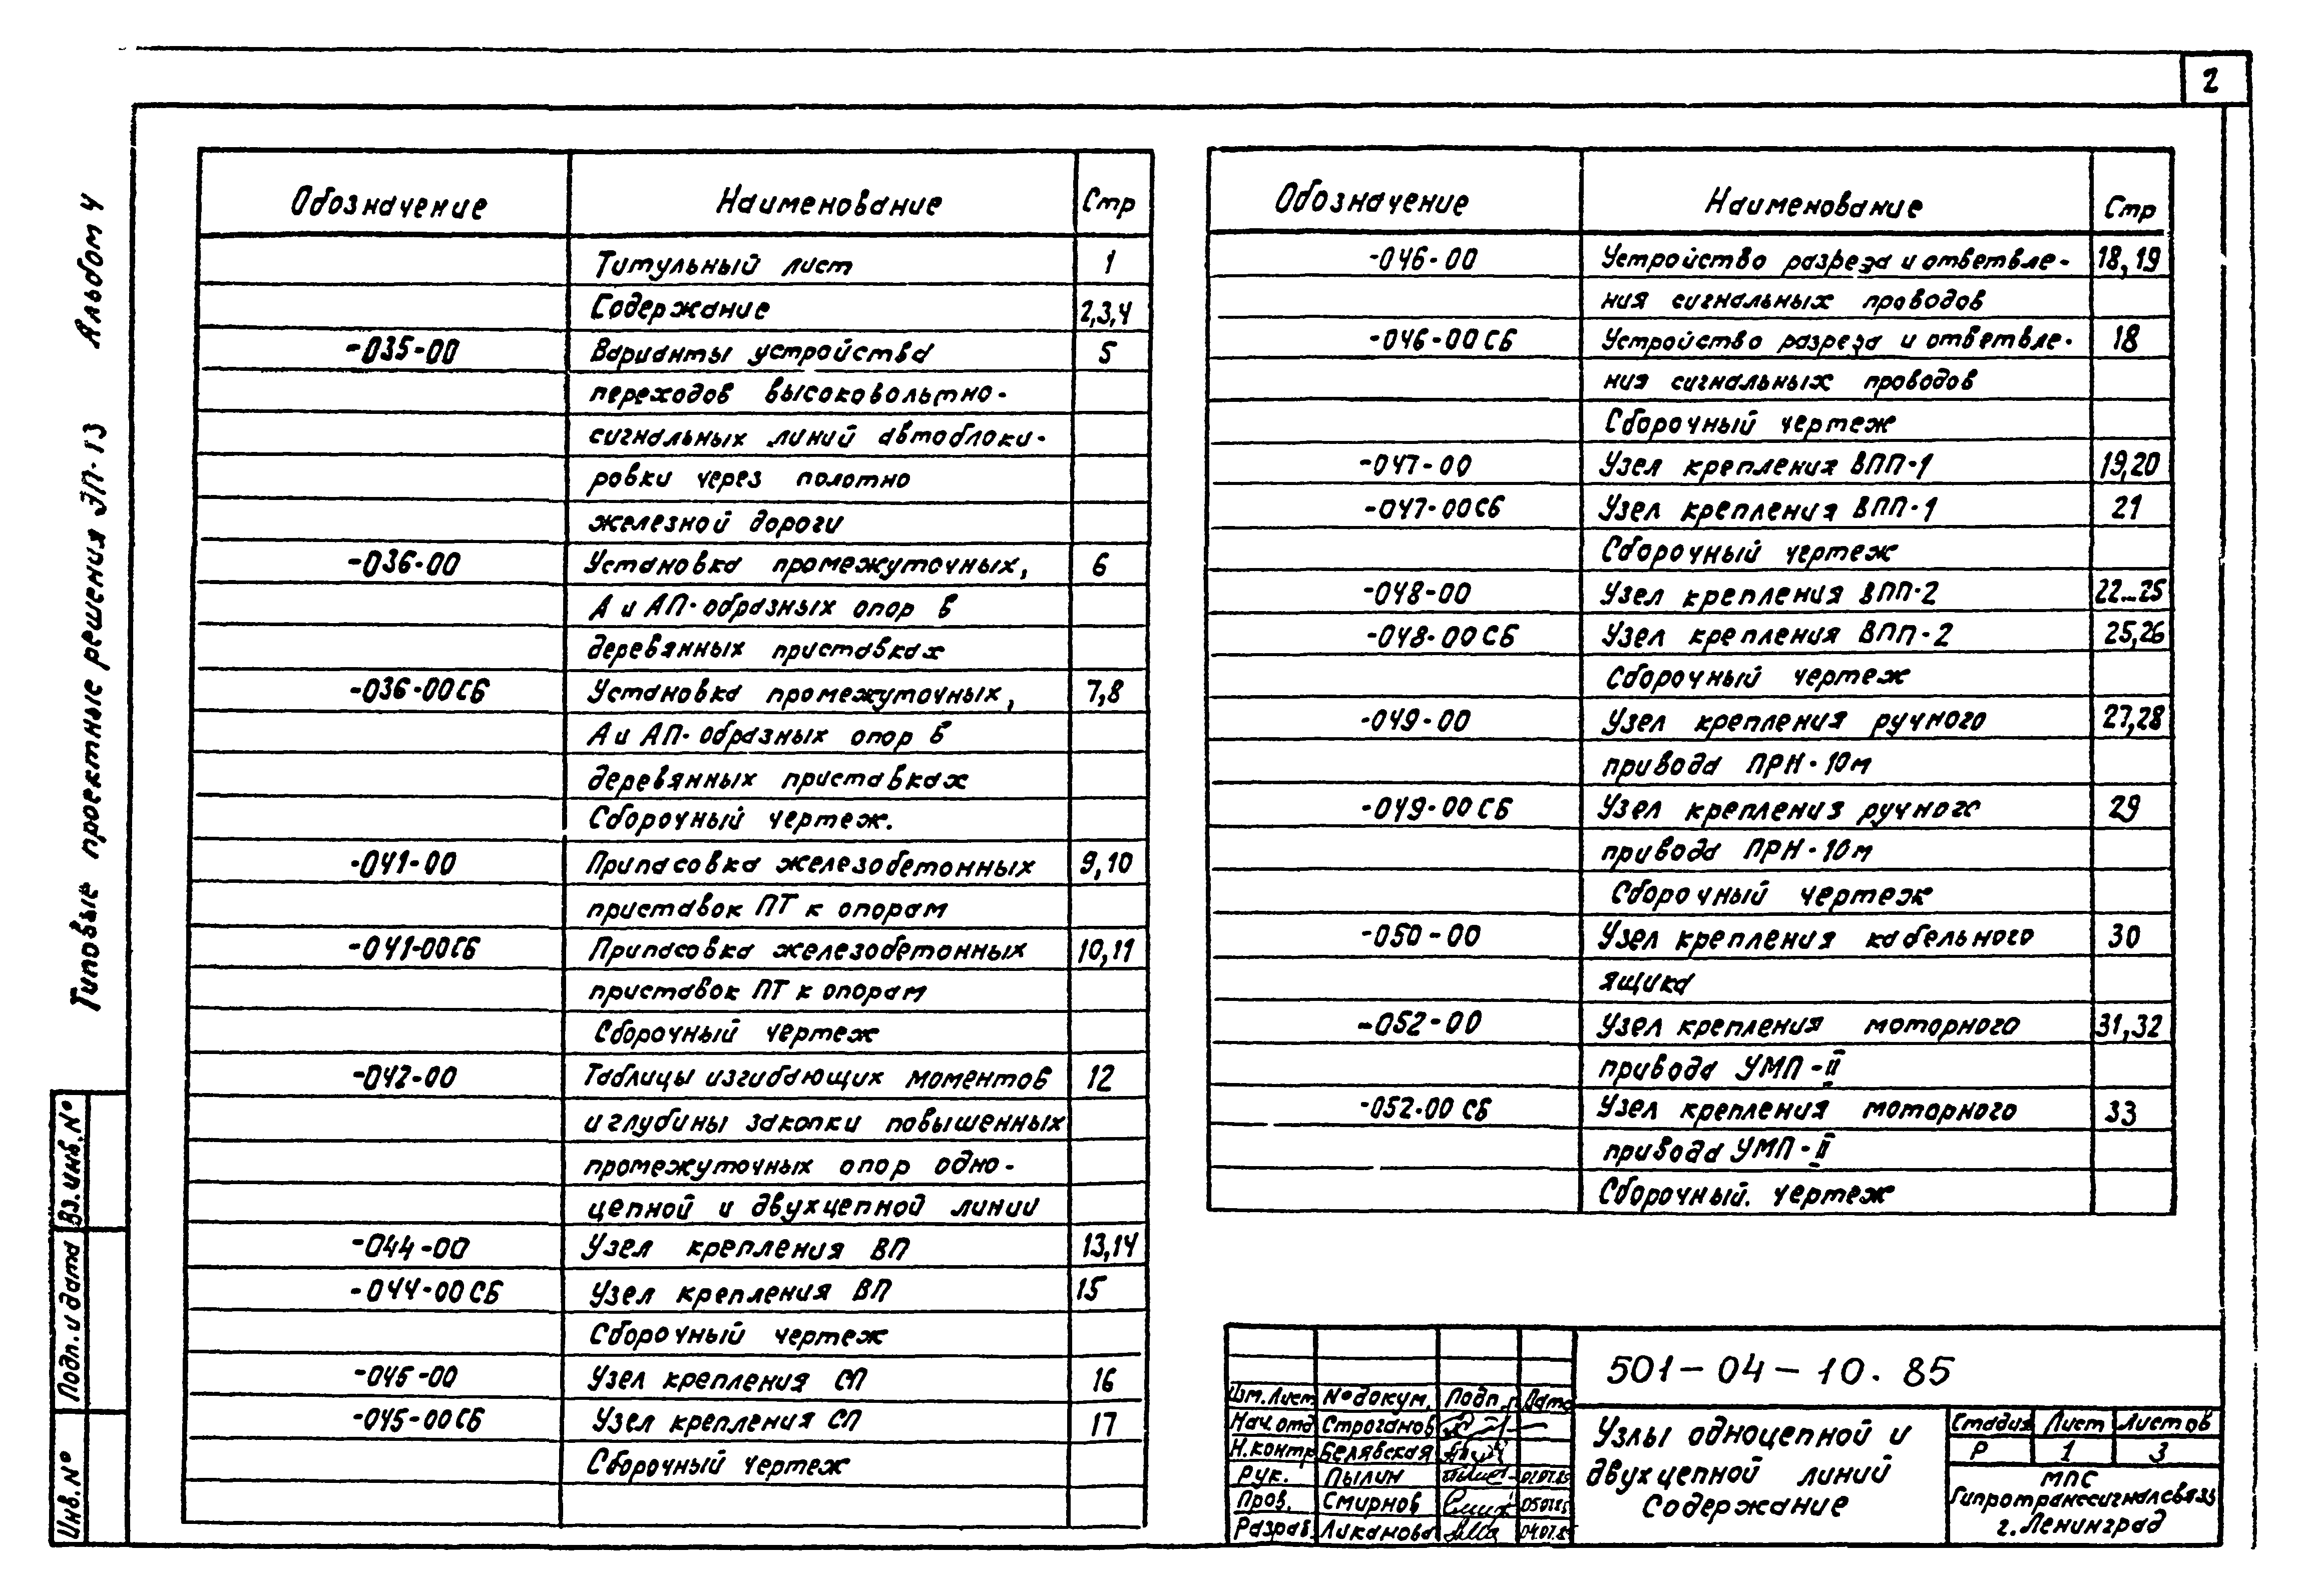 2
Типовые проектные решения ЭП-13 Альбом 4
Обозначение Наименование Стр
Титульный лист 1
Содержание 2,3,4
-035-00 Варианты устройства 5
переходов высоковольтно-
сигнальных линий автоблоки-
ровки через полотно
железной дороги
-036-00 Установка промежуточных, 6
А и АП-образных опор в
деревянных приставках
-036-00СБ Установка промежуточных, 7,8
А и АП-образных опор в
деревянных приставках
Сборочный чертеж.
-041-00 Припасовка железобетонных 9,10
приставок ПТ к опорам
-041-00СБ Припасовка железобетонных 10,11
приставок ПТ к опорам
Сборочный чертеж
-042-00 Таблицы изгибающих моментов 12
и глубины закопки повышенных
промежуточных опор одно-
цепной и двухцепной линии
-044-00 Узел крепления ВП 13,14
-044-00СБ Узел крепления ВП 15
Сборочный чертеж
-045-00 Узел крепления СП 16
-045-00СБ Узел крепления СП 17
Сборочный чертеж
Обозначение Наименование Стр
-046-00 Устройство разреза и ответвле- 18,19
ния сигнальных проводов
-046-00СБ Устройство разреза и ответвле- 18
ния сигнальных проводов
Сборочный чертеж
-047-00 Узел крепления ВПП-1 19,20
-047-00СБ Узел крепления ВПП-1 21
Сборочный чертеж
-048-00 Узел крепления ВПП-2 22...25
-048-00СБ Узел крепления ВПП-2 25,26
Сборочный чертеж
-049-00 Узел крепления ручного 27,28
привода ПРН-10м
-049-00СБ Узел крепления ручного 29
привода ПРН-10м
Сборочный чертеж
-050-00 Узел крепления кабельного 30
ящика
-052-00 Узел крепления моторного 31,32
привода УМП-II
-052-00СБ Узел крепления моторного 33
привода УМП-II
Сборочный. чертеж
Вз.инв.N°
Подп. и дата
Инв.N°
Изм. Лист N°докум. Подп. Дата
Нач.отд Строганов
Н.контр Белявская
Рук. Пылин
Пров. Смирнов
Разраб. Ликанова
501-04-10.85
Узлы одноцепной и
двухцепной линий
Содержание
Стадия Лист Листов
Р 1 3
МПС
Гипротранссигналсвязь
г.Ленинград